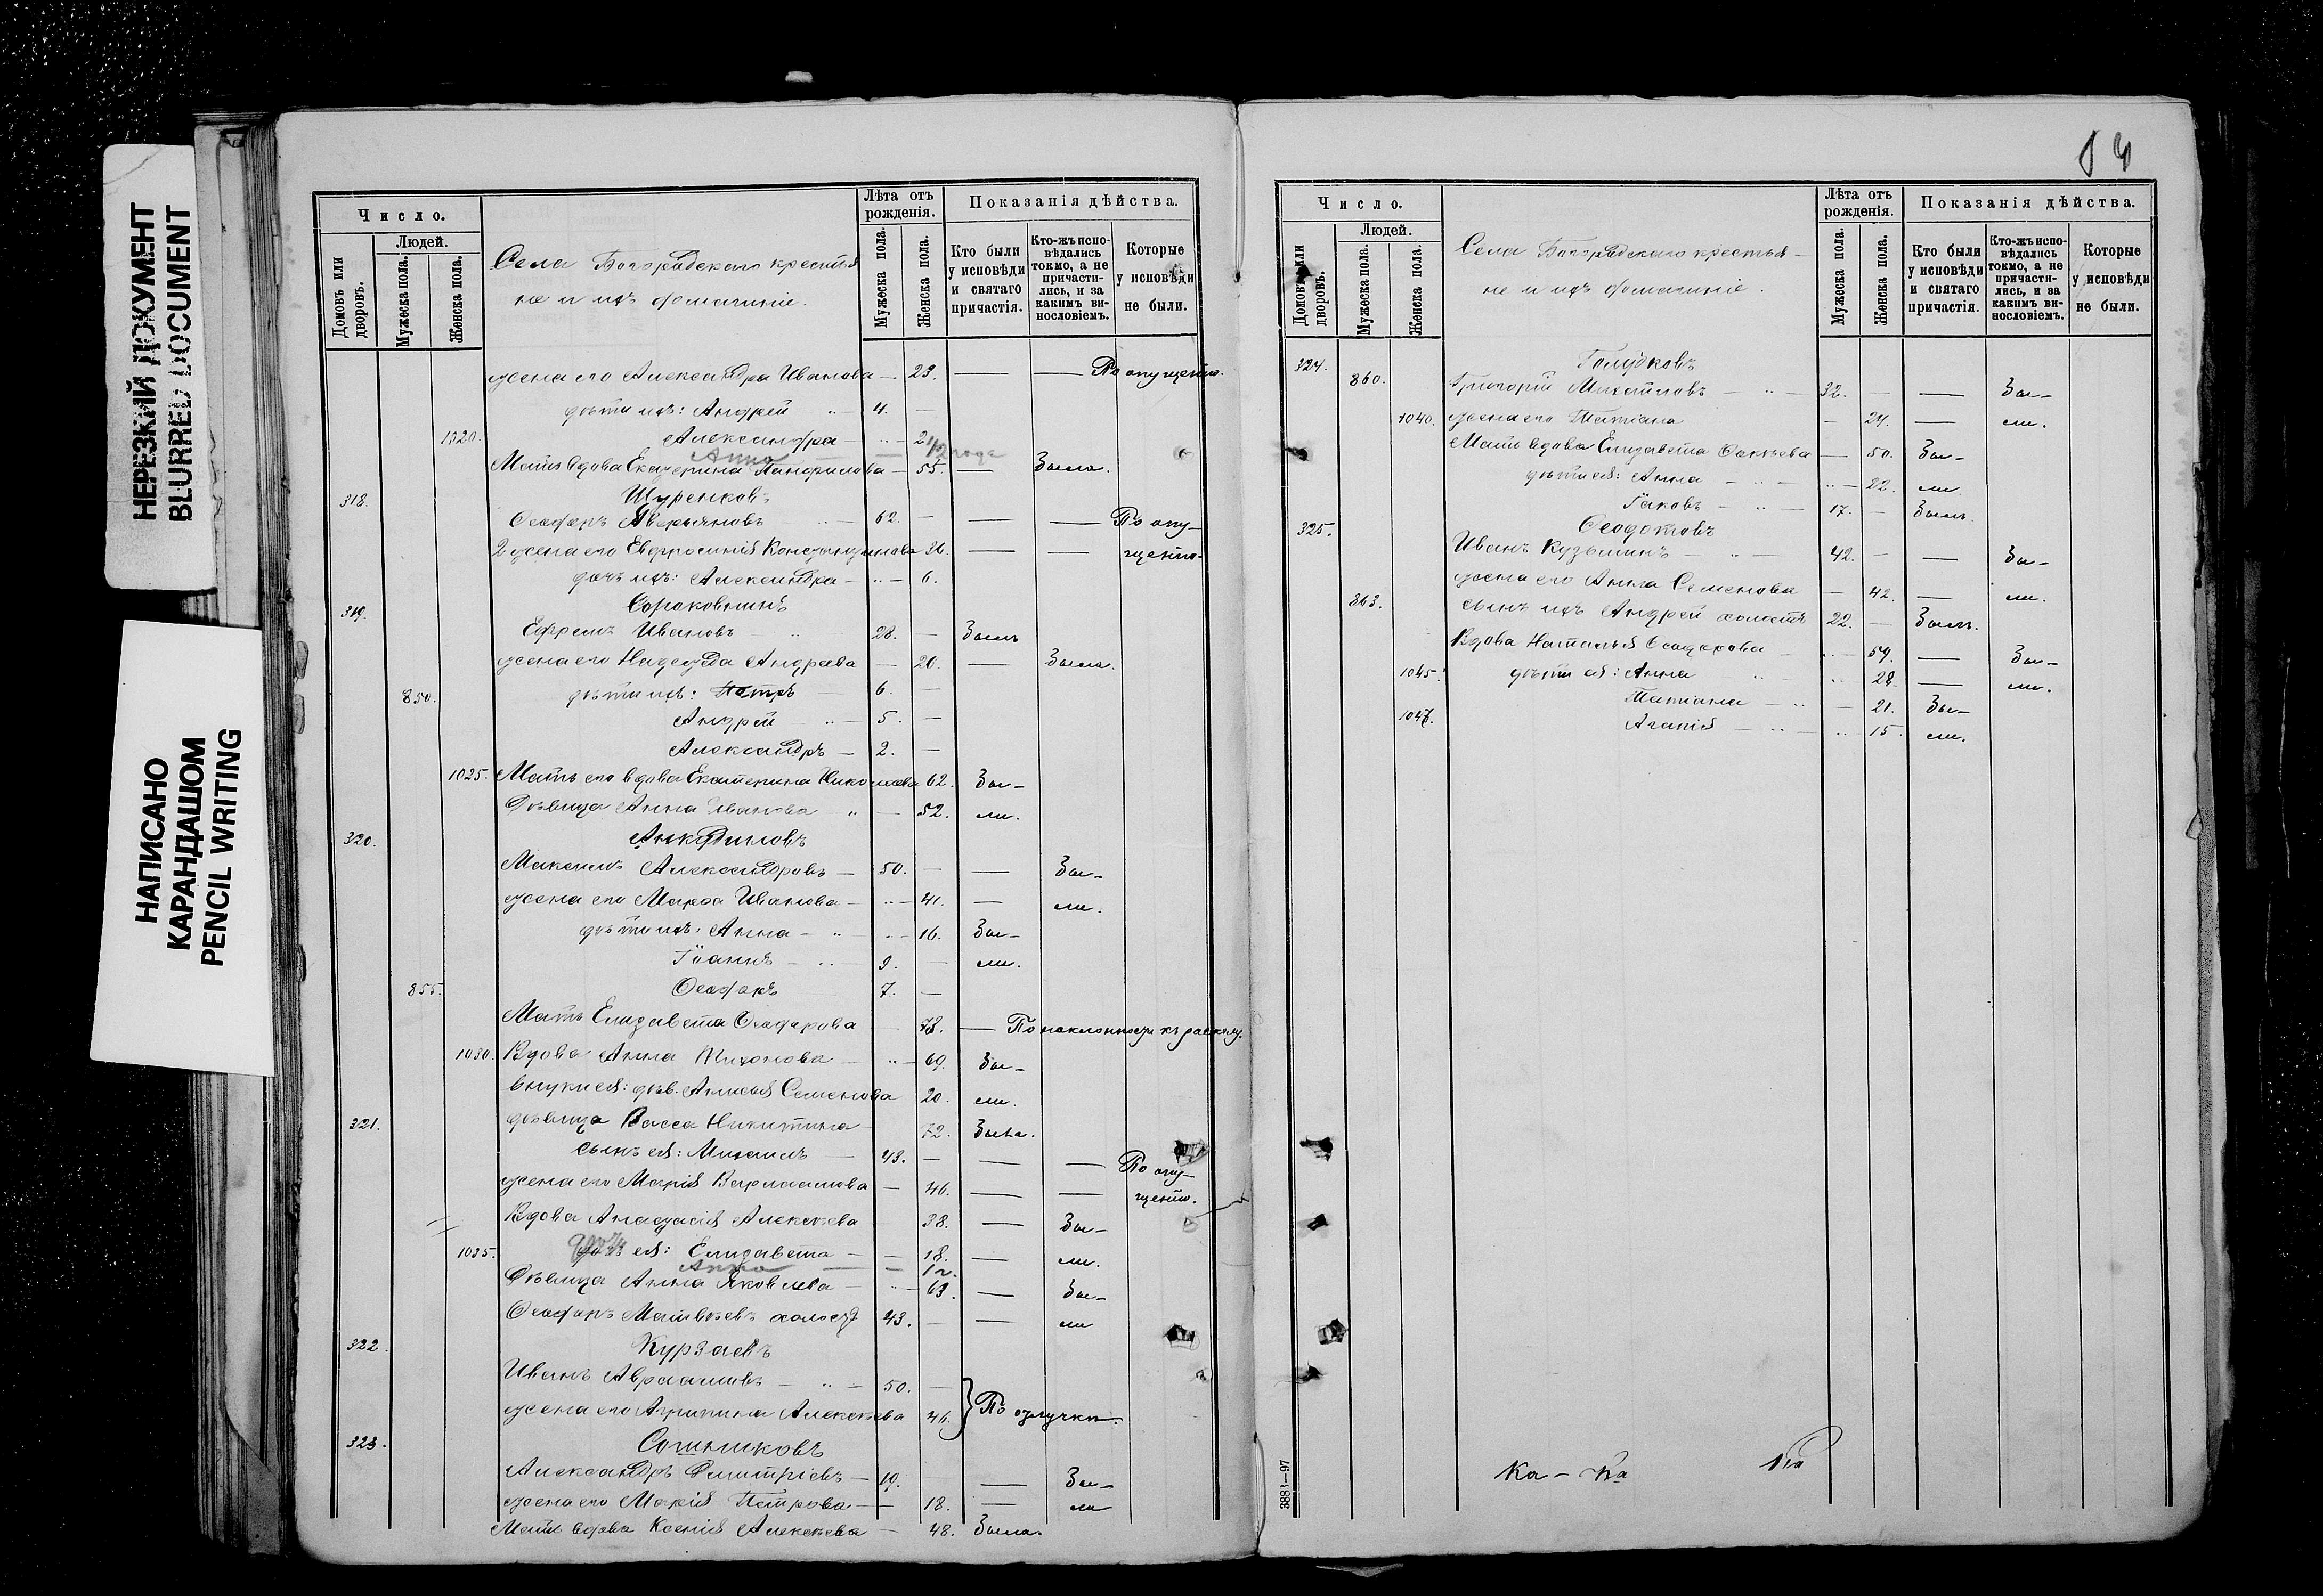 НЕРЕЗКИЙ ДОКУМЕНТ
BLURRED DOCUMENT
НАПИСАНО
КАРАНДАШОМ
PENCIL WRITING
Число.
Людей.
Домовъ или дворовъ.
Мужеска пола.
Женска пола.
Села Богородскаго крестья
не и ихъ домашніе.
Лѣта отъ рожденія.
Мужеска пола.
Женска пола.
Показанія дѣйства.
Кто были у исповѣди и святаго причастія.
Кто-жъ исповѣдались токмо, а не причастились, и за какимъ винословіемъ.
Которые у исповѣди не были.
жена его Александра Иванова — 23. — — По опущенію.
дѣти ихъ: Андрей „ — 4. —
1020. Александра — „ — 2
Анна — — 1/2 года
Мать вдова Екатерина Панфилова — 55. — Была.
318. Шуренковъ
Ѳеодоръ Аверьяновъ „ — 62. — — — По опу-
2 жена его Евфросинія Константинова 36. — — щенію.
дочь ихъ: Александра — „ — 6.
319. Сороковнинъ
Ефремъ Ивановъ — „ 28. — Былъ
жена его Надежда Андреева — 26. — Была.
850. дѣти ихъ: Петръ 6. —
Андрей — „ — 5. —
Александръ — 2. —
1025. Мать его вдова Екатерина Николаева 62. Бы-
Дѣвица Анна Иванова — „ — 52. ли.
320. Анкудиновъ
Максимъ Александровъ — 50. — — Бы-
жена его Марѳа Иванова — „ — 41. — ли.
дѣти ихъ: Анна — „ — 16. Бы-
Іоаннъ — „ — 9. — ли.
855. Ѳеодоръ 7. —
Мать Елизавета Ѳеодорова — 73. — По наклонности къ расколу.
1030. Вдова Анна Тихонова — „ — 69. Бы-
внуки ея: дѣв. Анисья Семенова 20. ли.
321. дѣвица Васса Никитина 72. Была.
сынъ ея: Михаилъ — 43. — — — По опу-
жена его Марія Варлаамова — 46. — — щенію.
Вдова Анастасія Алексѣева 38. — Бы-
1035. дочь ея: Елизавета — — 18. — ли.
Анна — — 12.
Дѣвица Анна Яковлева — „ — 63. — Бы-
Ѳеодоръ Матвѣевъ холостъ 43. — — ли
322. Курзаевъ
Иванъ Авраамовъ — „ — 50. —
жена его Агрипина Алексѣева 46. } По отлучкѣ.
323. Сошниковъ
Александръ Димитріевъ — 19. — Бы-
жена его Марія Петрова — — 18. — ли
Мать вдова Ксенія Алексѣева — 48. Была.
Число.
Людей.
Домовъ или дворовъ.
Мужеска пола.
Женска пола.
Села Богородскаго крестья-
не и ихъ домашніе.
Лѣта отъ рожденія.
Мужеска пола.
Женска пола.
Показанія дѣйства.
Кто были у исповѣди и святаго причастія.
Кто-жъ исповѣдались токмо, а не причастились, и за какимъ винословіемъ.
Которые у исповѣди не были.
324. Голудковъ
860. Григорій Михайловъ — „ — 32. — — Бы-
1040. жена его Татіана — 24. — ли.
Мать вдова Елизавета Фокѣева — 50. Бы-
дѣти ея: Анна — „ — „ — 22. ли
Іаковъ — „ — 17. — Былъ.
325. Ѳеодотовъ
Иванъ Кузьминъ — „ — 42. — — Бы-
жена его Анна Семенова — 42. — ли.
863. сынъ ихъ Андрей холостъ 22. — Былъ.
Вдова Наталья Ѳеодорова — „ — 59. — Бы-
1045. дѣти ея: Анна „ „ 28. — ли.
Татіана — „ — 21. Бы-
1047. Агапія — „ — „ — 15. ли.
3883—97